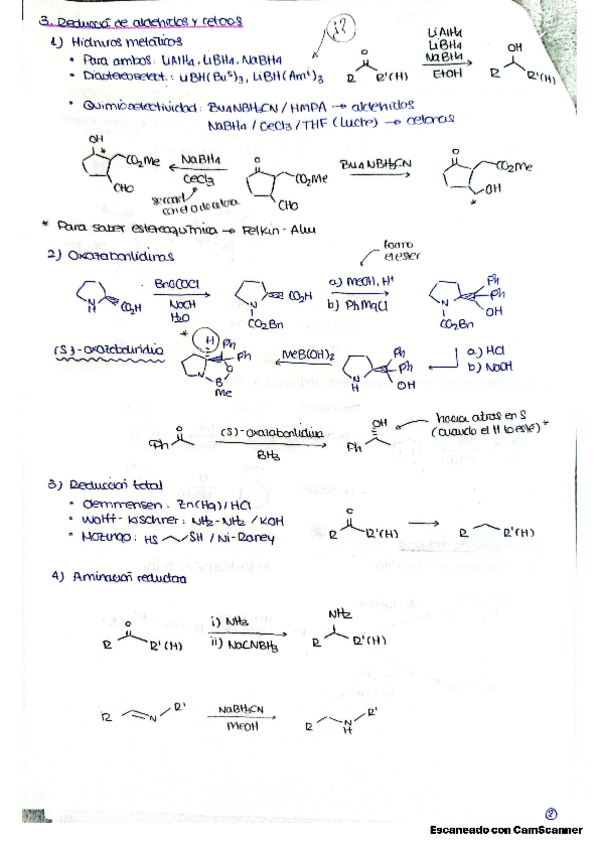 3. Reducció de aldehidos y cetoas
¡?
1) Hidruros metalicos
• Para ambos: LiAlH4, LiBH4, NaBH4
• Diastereoselect.: LiBH(Bu^s)3, LiBH(Am^i)3
O
R R'(H)
LiAlH4
LiBH4
NaBH4
EtOH
OH
R R'(H)
• Quimioselectividad: Bu4NBH3CN / HMPA → aldehidos
NaBH4 / CeCl3 / THF (Luche) → cetonas
OH
*
CO2Me
CHO
NaBH4
CeCl3
O
CO2Me
CHO
Bu4NBH3CN
O
CO2Me
OH
*
* Para saber estereoquímica → Felkin-Ahn
2) Oxazaborolidinas
formo
el ester
N
H
CO2H
BnOCOCl
NaOH
H2O
N
CO2H
CO2Bn
a) MeOH, H+
b) PhMgCl
N
CO2Bn
Ph
Ph
OH
a) HCl
b) NaOH
N
H
Ph
Ph
OH
MeB(OH)2
*
H
Ph
Ph
O
N
B
Me
(S)-oxazaborolidina
O
Ph
(S)-oxazaborolidina
BH3
OH
Ph
hacia atras en S
(cuando el H lo este) *
3) Reduccion total
• Clemmensen: Zn(Hg)/HCl
• Wolff-Kischner: NH2-NH2 / KOH
• Mozingo: HS SH / Ni-Raney
O
R R'(H)
R R'(H)
4) Aminacion reductora
O
R R'(H)
i) NH3
ii) NaCNBH3
NH2
R R'(H)
R N R'
NaBH3CN
MeOH
R N R'
H
2
Escaneado con CamScanner